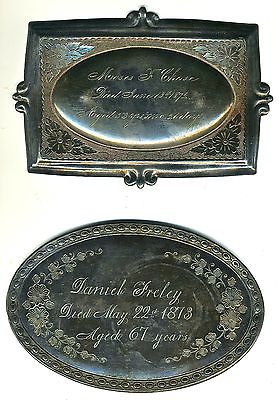 Moses F. Chase
Died June 13th 1872,
Aged 53 years
Daniel Freley
Died May 22d 1873
Aged 67 years